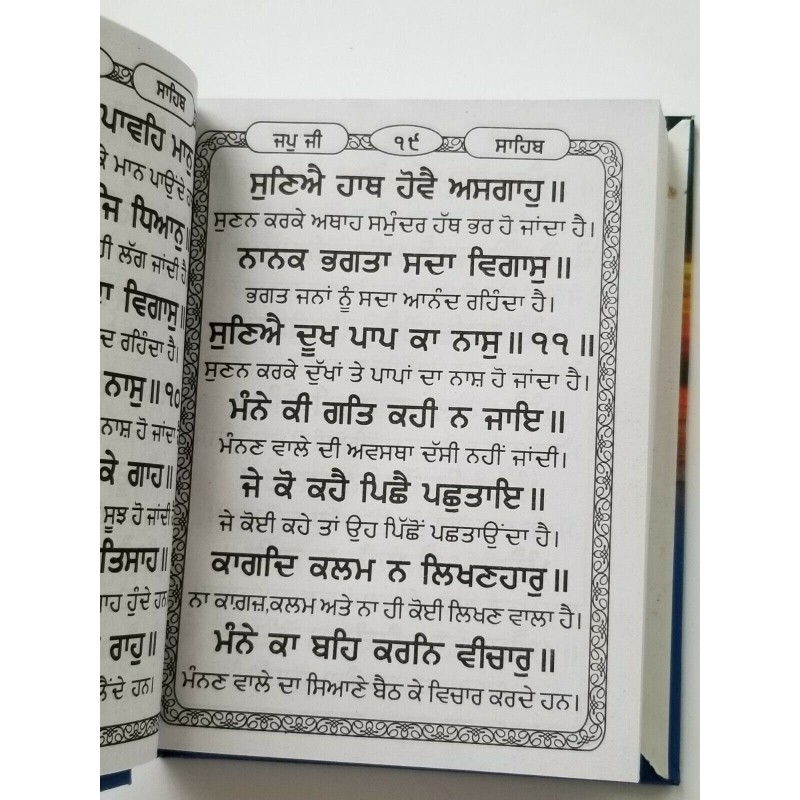 ਸਾਹਿਬ
ਪਾਵਹਿ ਮਾਨੁ
ਕੇ ਮਾਨ ਪਾਉਂਦੇ
ਧਿਆਨੁ॥
ਹੀ ਲੱਗ ਜਾਂਦੀ ਹੈ
ਵਿਗਾਸੁ॥
ਦ ਰਹਿੰਦਾ ਹੈ।
ਨਾਸੁ॥੧੦
ਨਾਸ਼ ਹੋ ਜਾਂਦਾ
ਕੇ ਗਾਹ॥
ਸੂਝ ਹੋ ਜਾਂਦੀ
ਤਿਸਾਹ॥
ਾਹ ਹੁੰਦੇ ਹਨ
ਰਾਹੁ॥
ਲੈਂਦੇ ਹਨ।
ਜਪੁ ਜੀ ੧੯ ਸਾਹਿਬ
ਸੁਣਿਐ ਹਾਥ ਹੋਵੈ ਅਸਗਾਹੁ॥
ਸੁਣਨ ਕਰਕੇ ਅਥਾਹ ਸਮੁੰਦਰ ਹੱਥ ਭਰ ਹੋ ਜਾਂਦਾ ਹੈ।
ਨਾਨਕ ਭਗਤਾ ਸਦਾ ਵਿਗਾਸੁ॥
ਭਗਤ ਜਨਾਂ ਨੂੰ ਸਦਾ ਆਨੰਦ ਰਹਿੰਦਾ ਹੈ।
ਸੁਣਿਐ ਦੂਖ ਪਾਪ ਕਾ ਨਾਸੁ॥੧੧॥
ਸੁਣਨ ਕਰਕੇ ਦੁੱਖਾਂ ਤੇ ਪਾਪਾਂ ਦਾ ਨਾਸ਼ ਹੋ ਜਾਂਦਾ ਹੈ।
ਮੰਨੇ ਕੀ ਗਤਿ ਕਹੀ ਨ ਜਾਇ॥
ਮੰਨਣ ਵਾਲੇ ਦੀ ਅਵਸਥਾ ਦੱਸੀ ਨਹੀਂ ਜਾਂਦੀ।
ਜੇ ਕੋ ਕਹੈ ਪਿਛੈ ਪਛੁਤਾਇ॥
ਜੇ ਕੋਈ ਕਹੇ ਤਾਂ ਉਹ ਪਿੱਛੋਂ ਪਛਤਾਉਂਦਾ ਹੈ।
ਕਾਗਦਿ ਕਲਮ ਨ ਲਿਖਣਹਾਰੁ॥
ਨਾ ਕਾਗਜ਼,ਕਲਮ ਅਤੇ ਨਾ ਹੀ ਕੋਈ ਲਿਖਣ ਵਾਲਾ ਹੈ।
ਮੰਨੇ ਕਾ ਬਹਿ ਕਰਨਿ ਵੀਚਾਰੁ॥
ਮੰਨਣ ਵਾਲੇ ਦਾ ਸਿਆਣੇ ਬੈਠ ਕੇ ਵਿਚਾਰ ਕਰਦੇ ਹਨ।